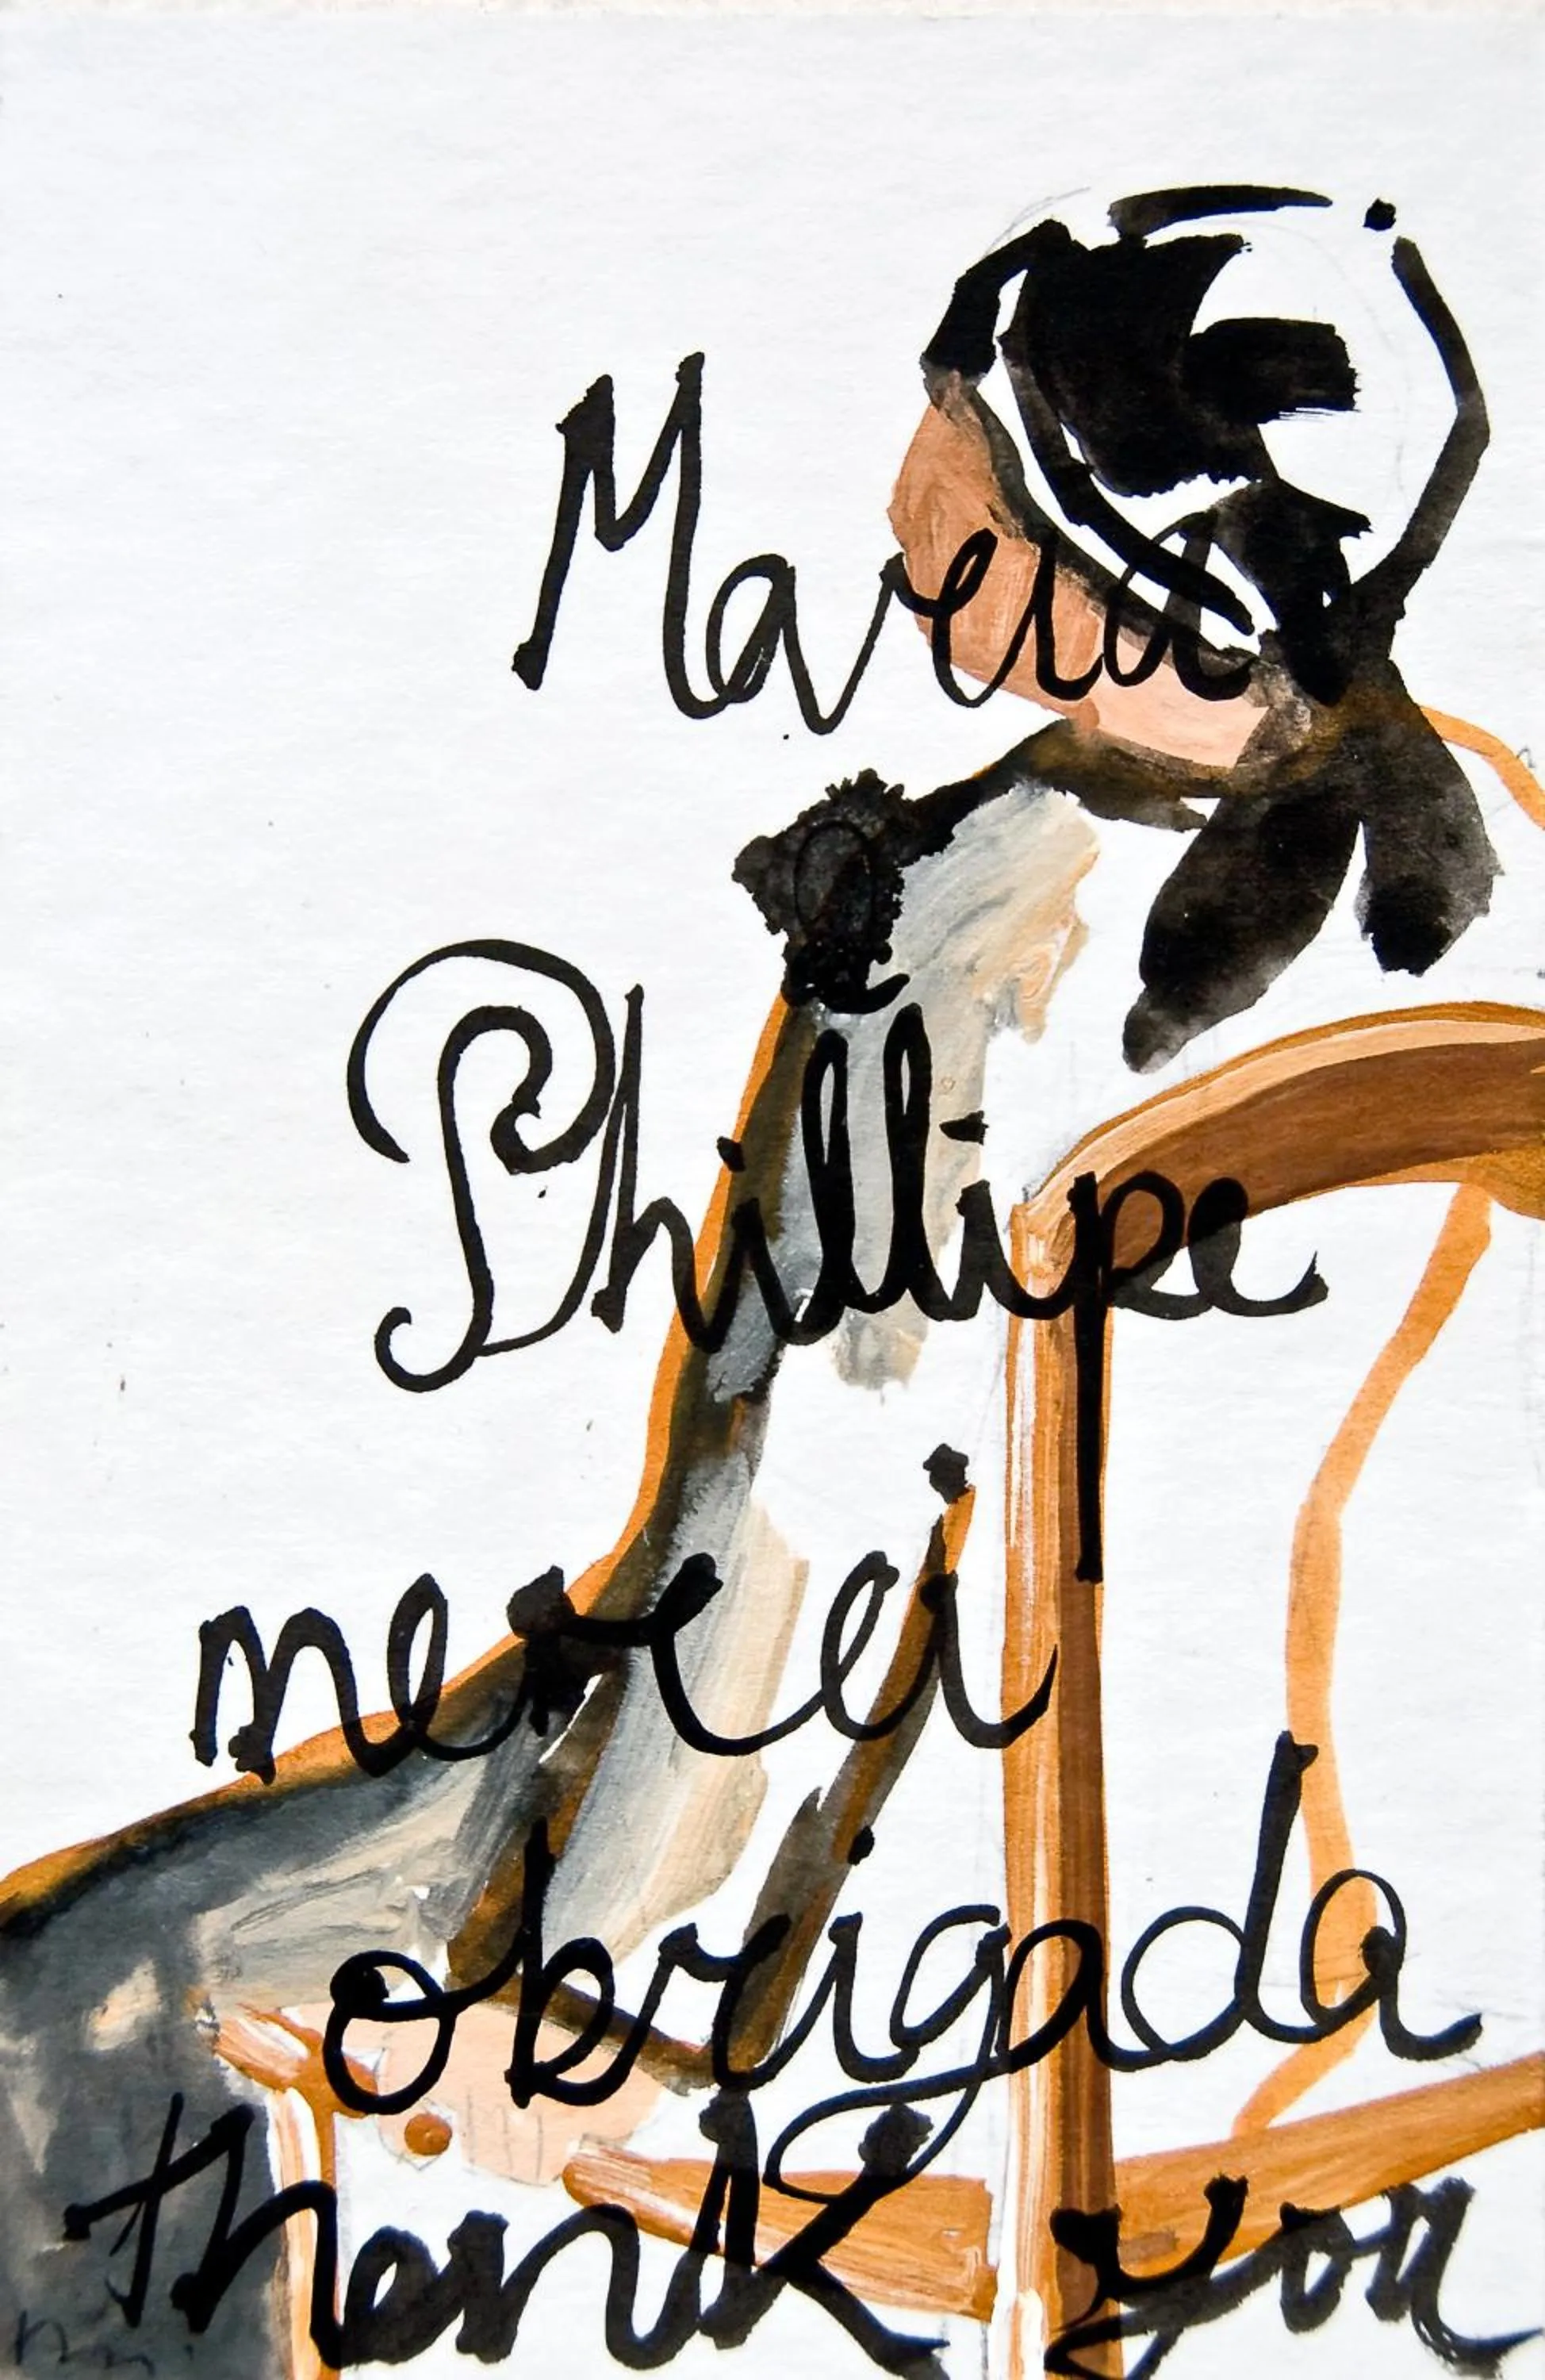 Mareia
e
Phillipe
mercei
obrigada
thank you